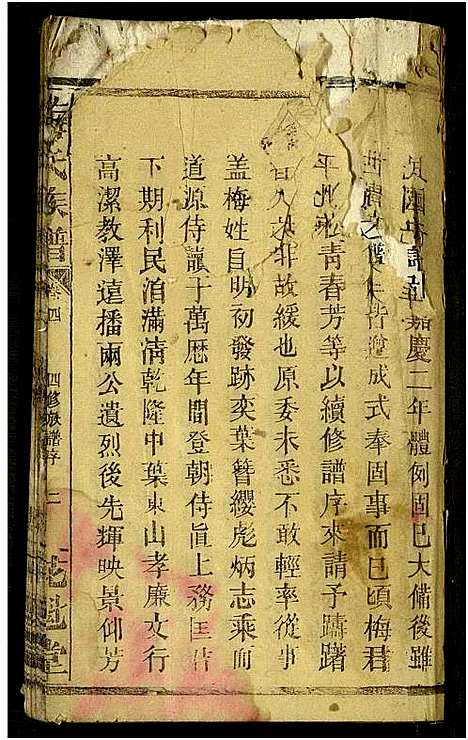 嘉慶二年體例固已大備後雖
成式奉固事而已頃梅君
青春芳等以續修譜序來請予躊躇
日久並非故緩也原委未悉不敢輕率從事
盖梅姓自明初發跡奕葉簪纓彪炳志乘而
道源侍龍于萬厯年間登朝侍眞上務匡
下期利民洎滿清乾隆中葉東山孝廉文行
高潔教澤遠播兩公遺烈後先輝映景仰芳
梅氏族譜 卷四 四修族譜序 二 堂